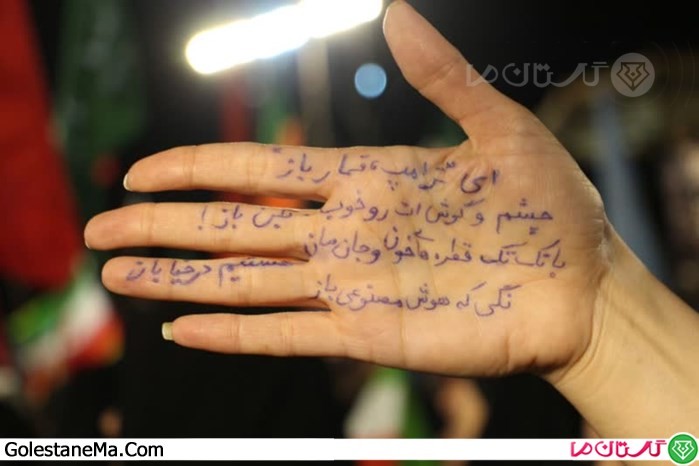 گلستان ما
ای "ترامپ، قمار باز"
چشم و گوش ات رو خوب - کن باز!
با تک تک قطره های خون و جان مان هستیم در حیا باز
نگی که هوش مصنوعی باز
GolestaneMa.Com
گلستان ما